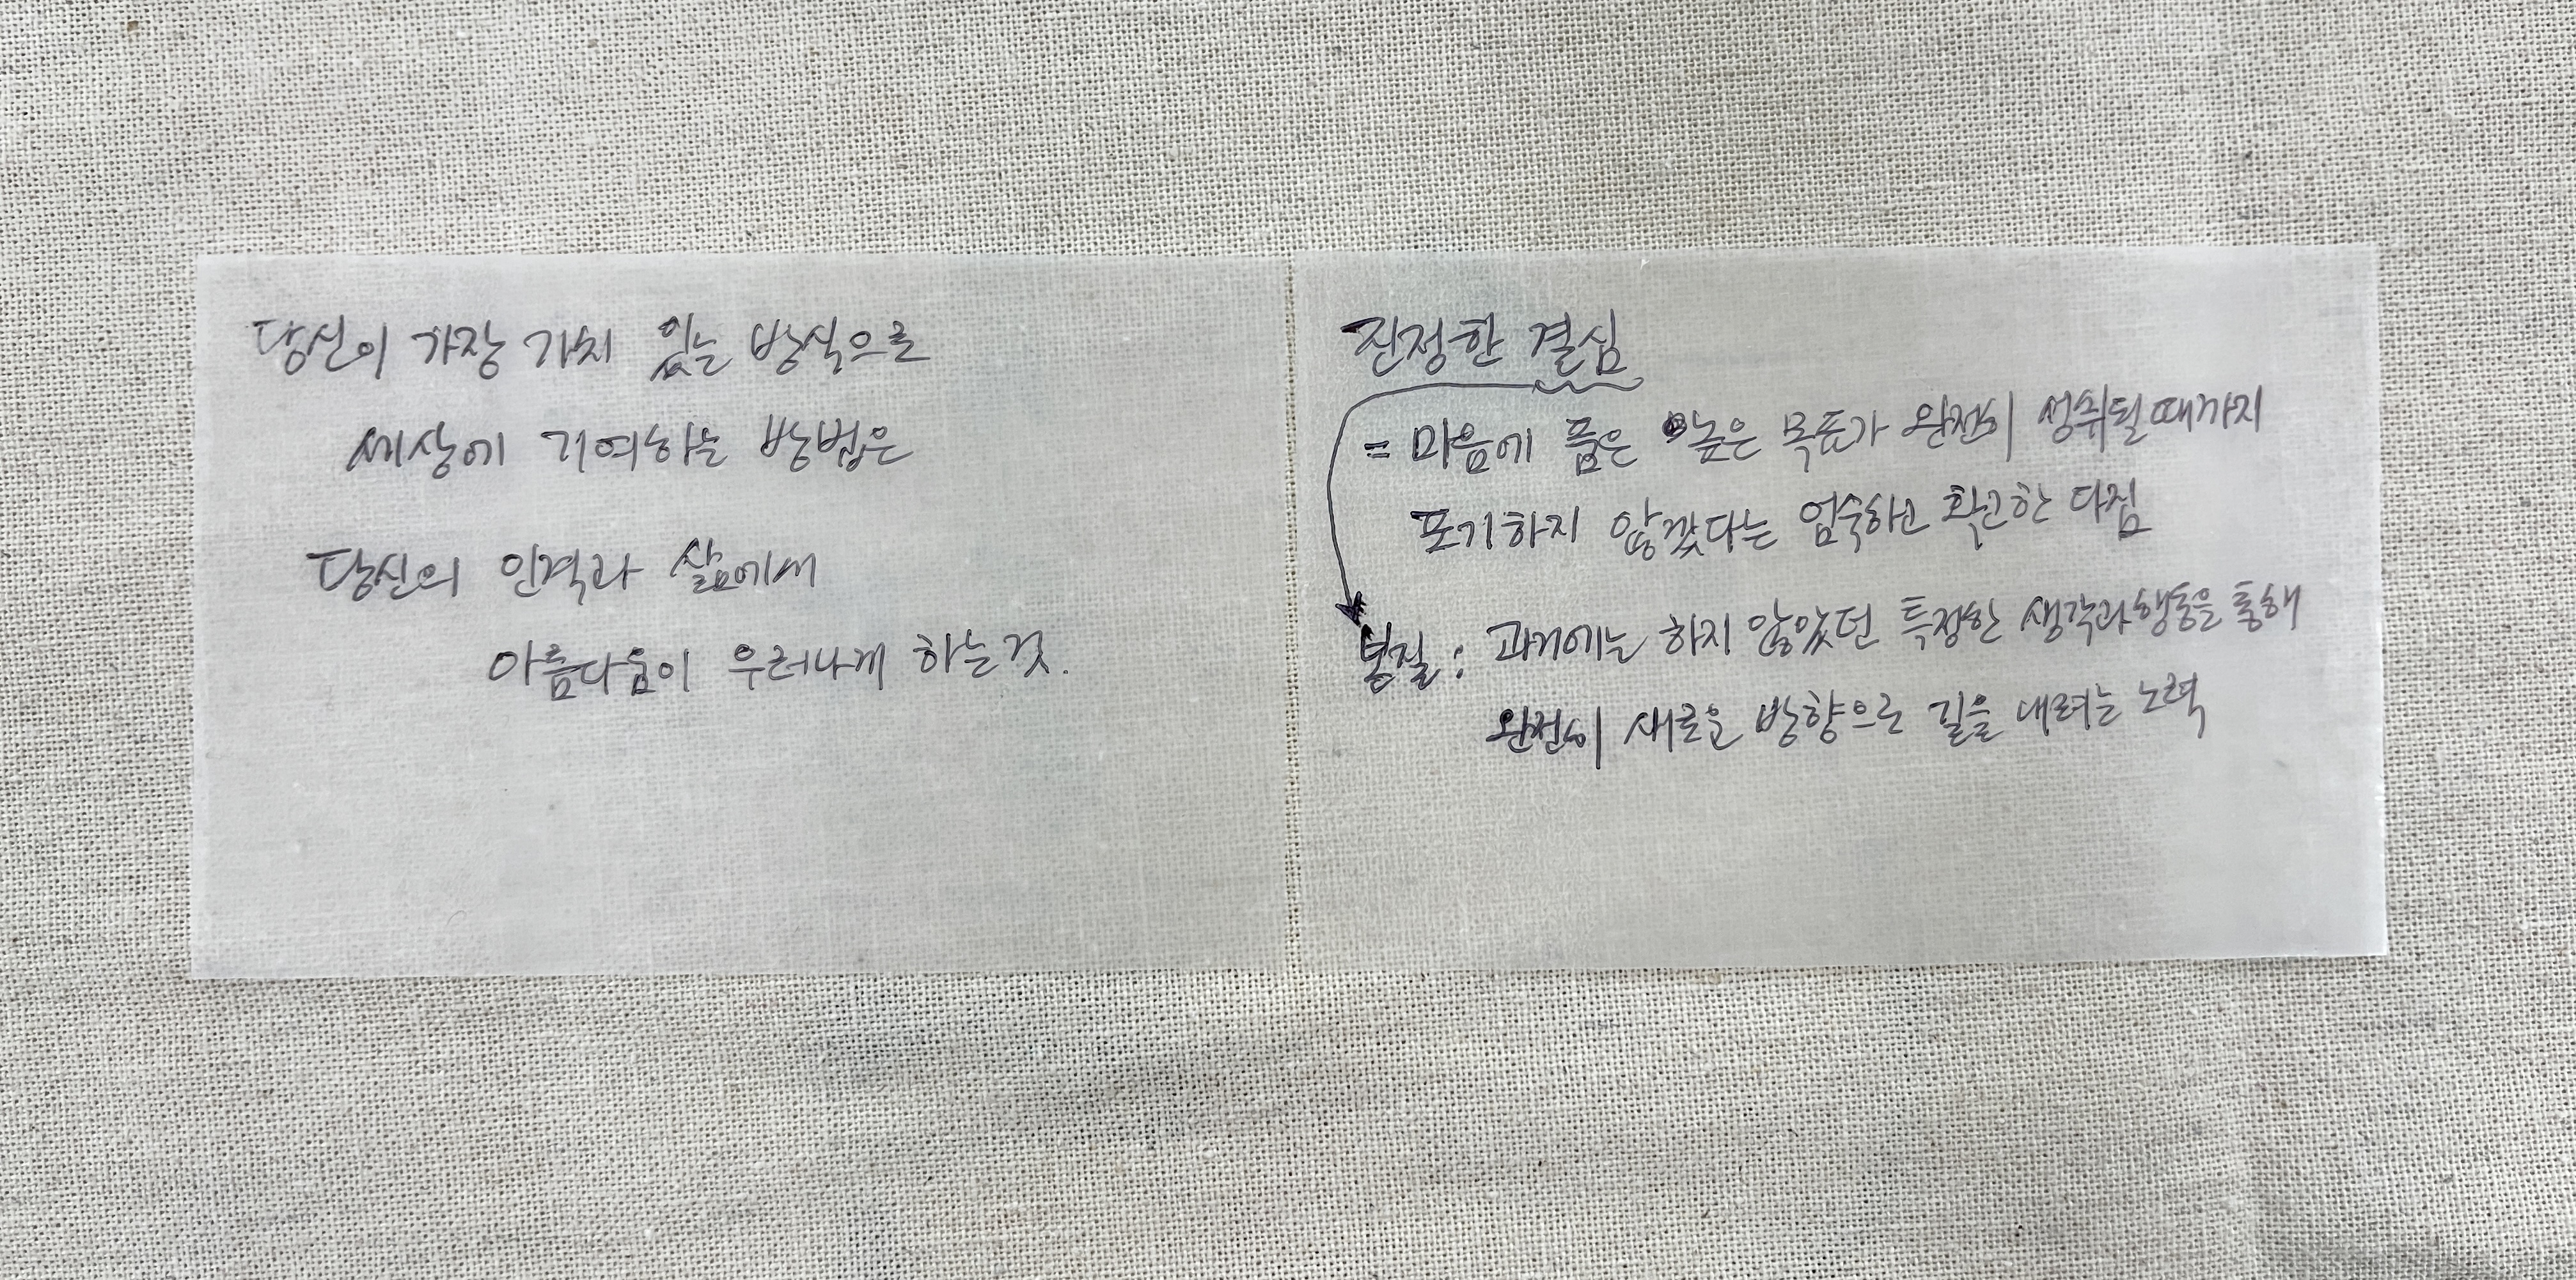 당신이 가장 가치 있는 방식으로
세상에 기여하는 방법은
당신의 인격과 삶에서
아름다움이 우러나게 하는것.
진정한 결심
= 마음에 품은 높은 목표가 완전히 성취될때까지
포기하지 않겠다는 엄숙하고 확고한 다짐
본질 : 과거에는 하지 않았던 특정한 생각과행동을 통해
완전히 새로운 방향으로 길을 내려는 노력